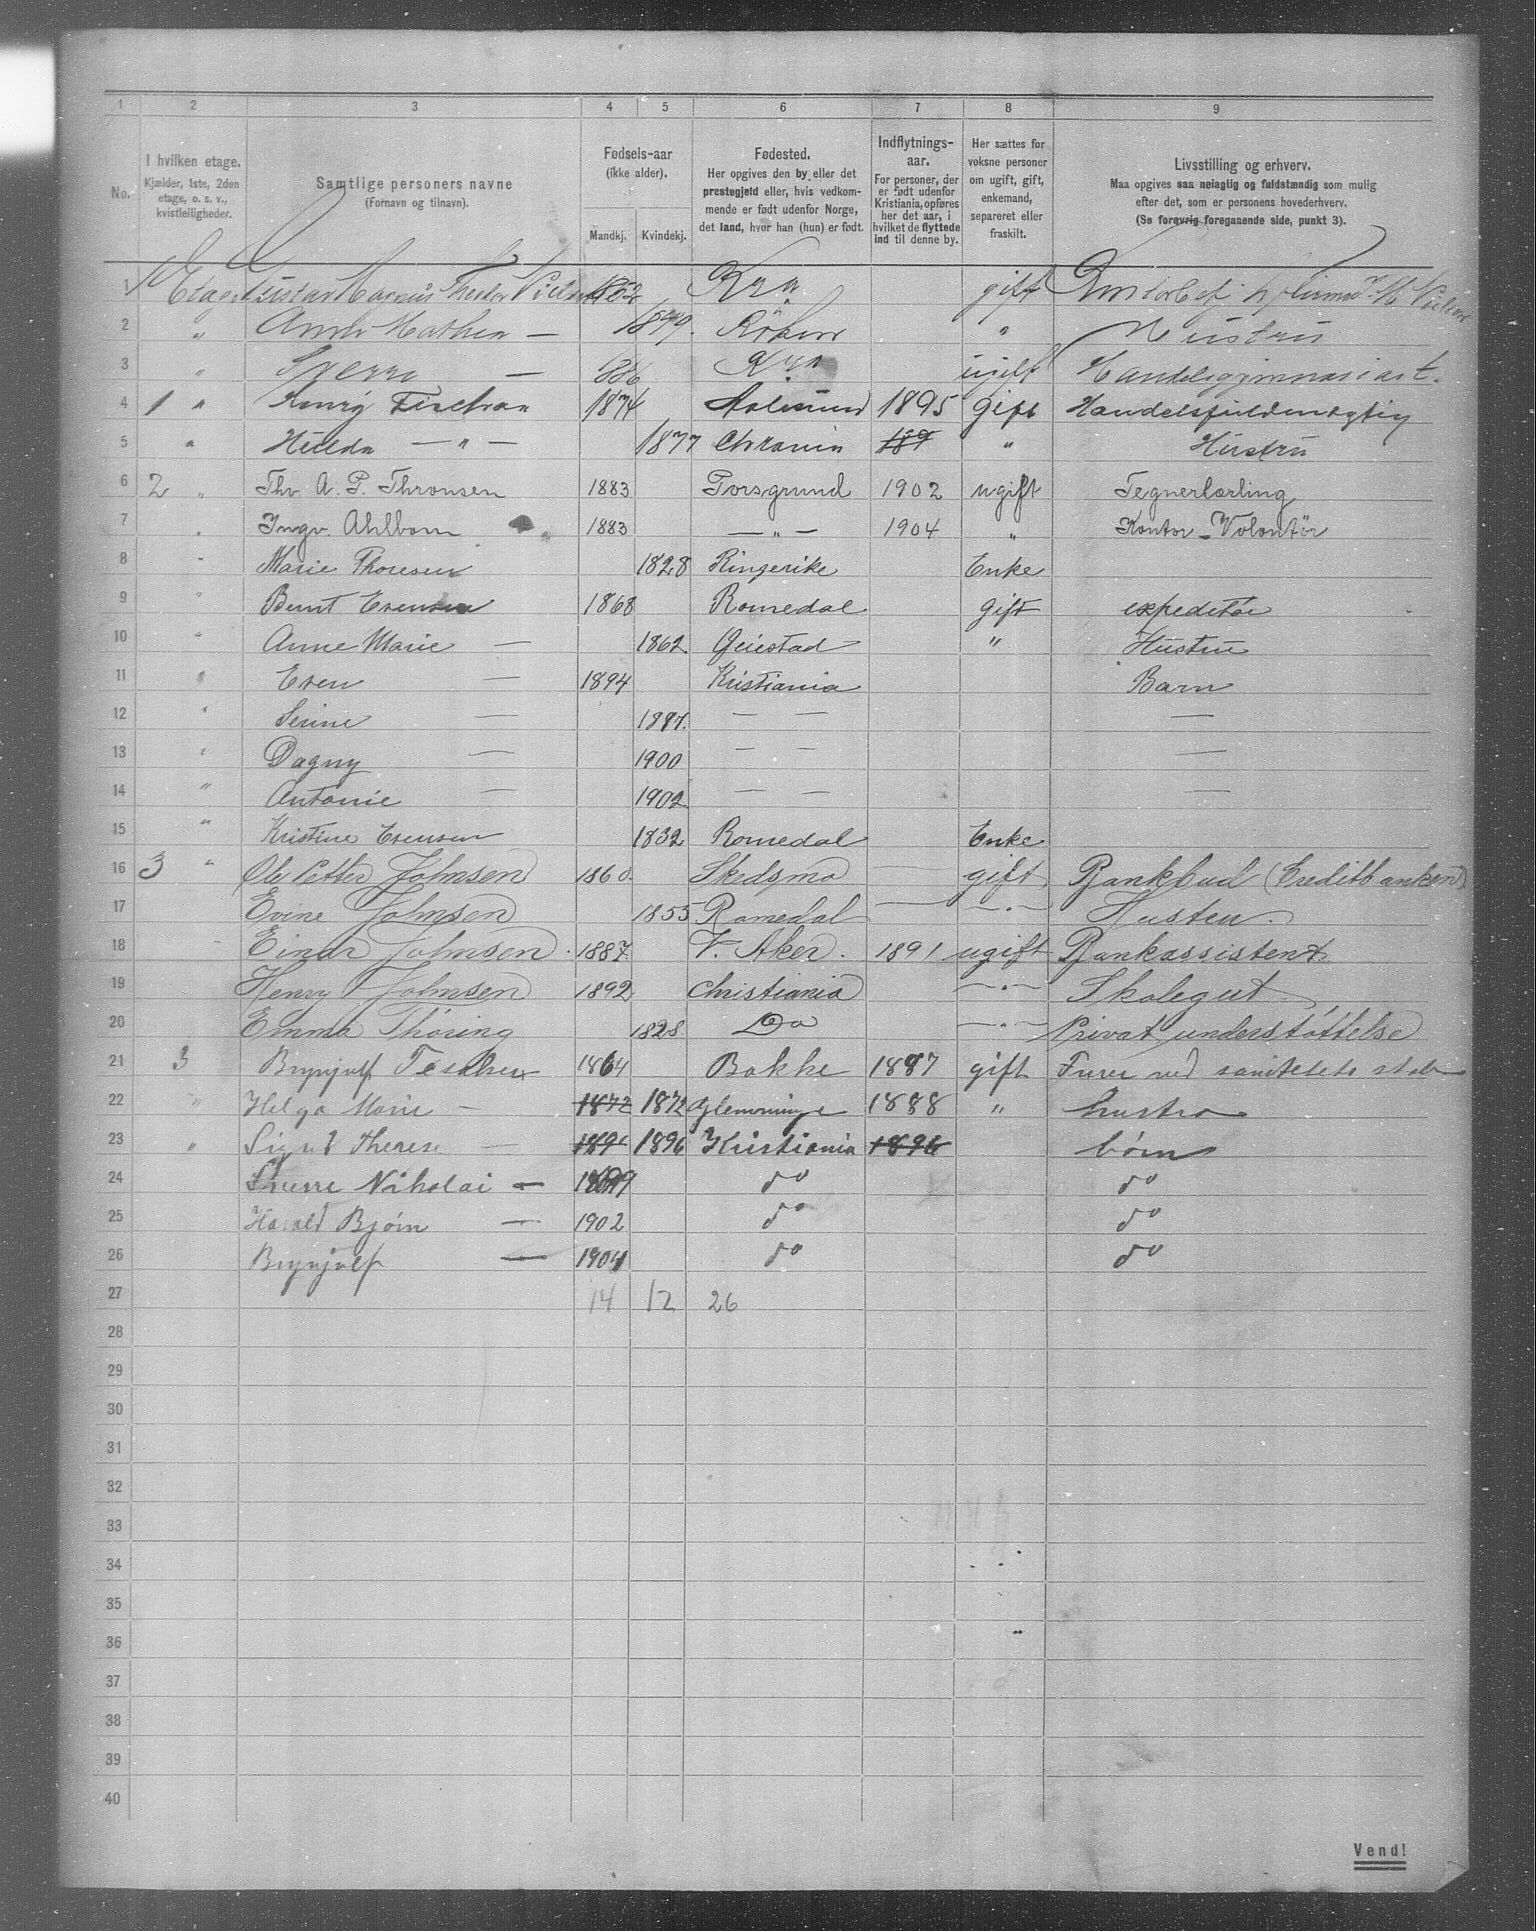 1 2 3 4 5 6 7 8 9
No.
I hvilken etage.
Kjælder, 1ste, 2den
etage, o. s. v.,
kvistleiligheder.
Samtlige personers navne
(Fornavn og tilnavn).
Fødsels-aar
(ikke alder).
Mandkj. Kvindekj.
Fødested.
Her opgives den by eller det
prestegjeld eller, hvis vedkom-
mende er født udenfor Norge,
det land, hvor han (hun) er født.
Indflytnings-
aar.
For personer, der
er født udenfor
Kristiania, opføres
her det aar, i
hvilket de flyttede
ind til denne by.
Her sættes for
voksne personer
om ugift, gift,
enkemand,
separeret eller
fraskilt.
Livsstilling og erhverv.
Maa opgives saa nøiagtig og fuldstændig som mulig
efter det, som er personens hovederhverv.
(Se forøvrig foregaaende side, punkt 3).
1 Etage Gustav Magnus 1862 Kra gift
2 " — 1879. " Hustru
3 " Sverre — 886 Kra ugift Handelsgymnasiast.
4 1 " 1874 Aalesund 1895 gift Handelsfuldmægtig
5 " Hilda — " — 1877 Chrania 189 " Hustru
6 2 " Thv. A. P. Thronsen 1883 Porsgrund 1902 ugift Tegnerlærling
7 " Ingv. Ahlborn 1883 — " — 1904 " Kontor-Volontør
8 " Marie Thoresen 1828 Ringerike Enke
9 " Bernt Evensen 1868 Romedal gift expeditør
10 " Anne Marie — 1862 " Hustru
11 " Even — 1894 Kristiania Barn
12 " — 1897. — — —
13 " Dagny — 1900 — — —
14 " Antonie — 1902 — — —
15 " Kristine Evensen 1832 Romedal Enke
16 3 " Ole Petter Johnsen 1860. Skedsmo — gift Bankbud (Creditbanken)
17 Evine Johnsen 1855 Romedal — — " — Hustru.
18 Einar Johnsen. 1887. V. Aker. 1891 ugift Bankassistent
19 Henry Johnsen 1892 Christiania — " — Skolegut
20 Emma Thøring 1828. Do — " — Privat understøttelse
21 3 Brynjulf 1864 Bakke 1887 gift Furer ved sanitetets stab
22 " Helga Marie — 1872 1872 Glemminge 1888 " hustro
23 " Therese — 1896 1896 Kristiania 1896 børn
24 Sverre Nikolai — 1899 do do
25 Harald Bjørn — 1902 do do
26 Brynjulf — 1904 do do
27 14 12 26
28
29
30
31
32
33
34
35
36
37
38
39
40
Vend!